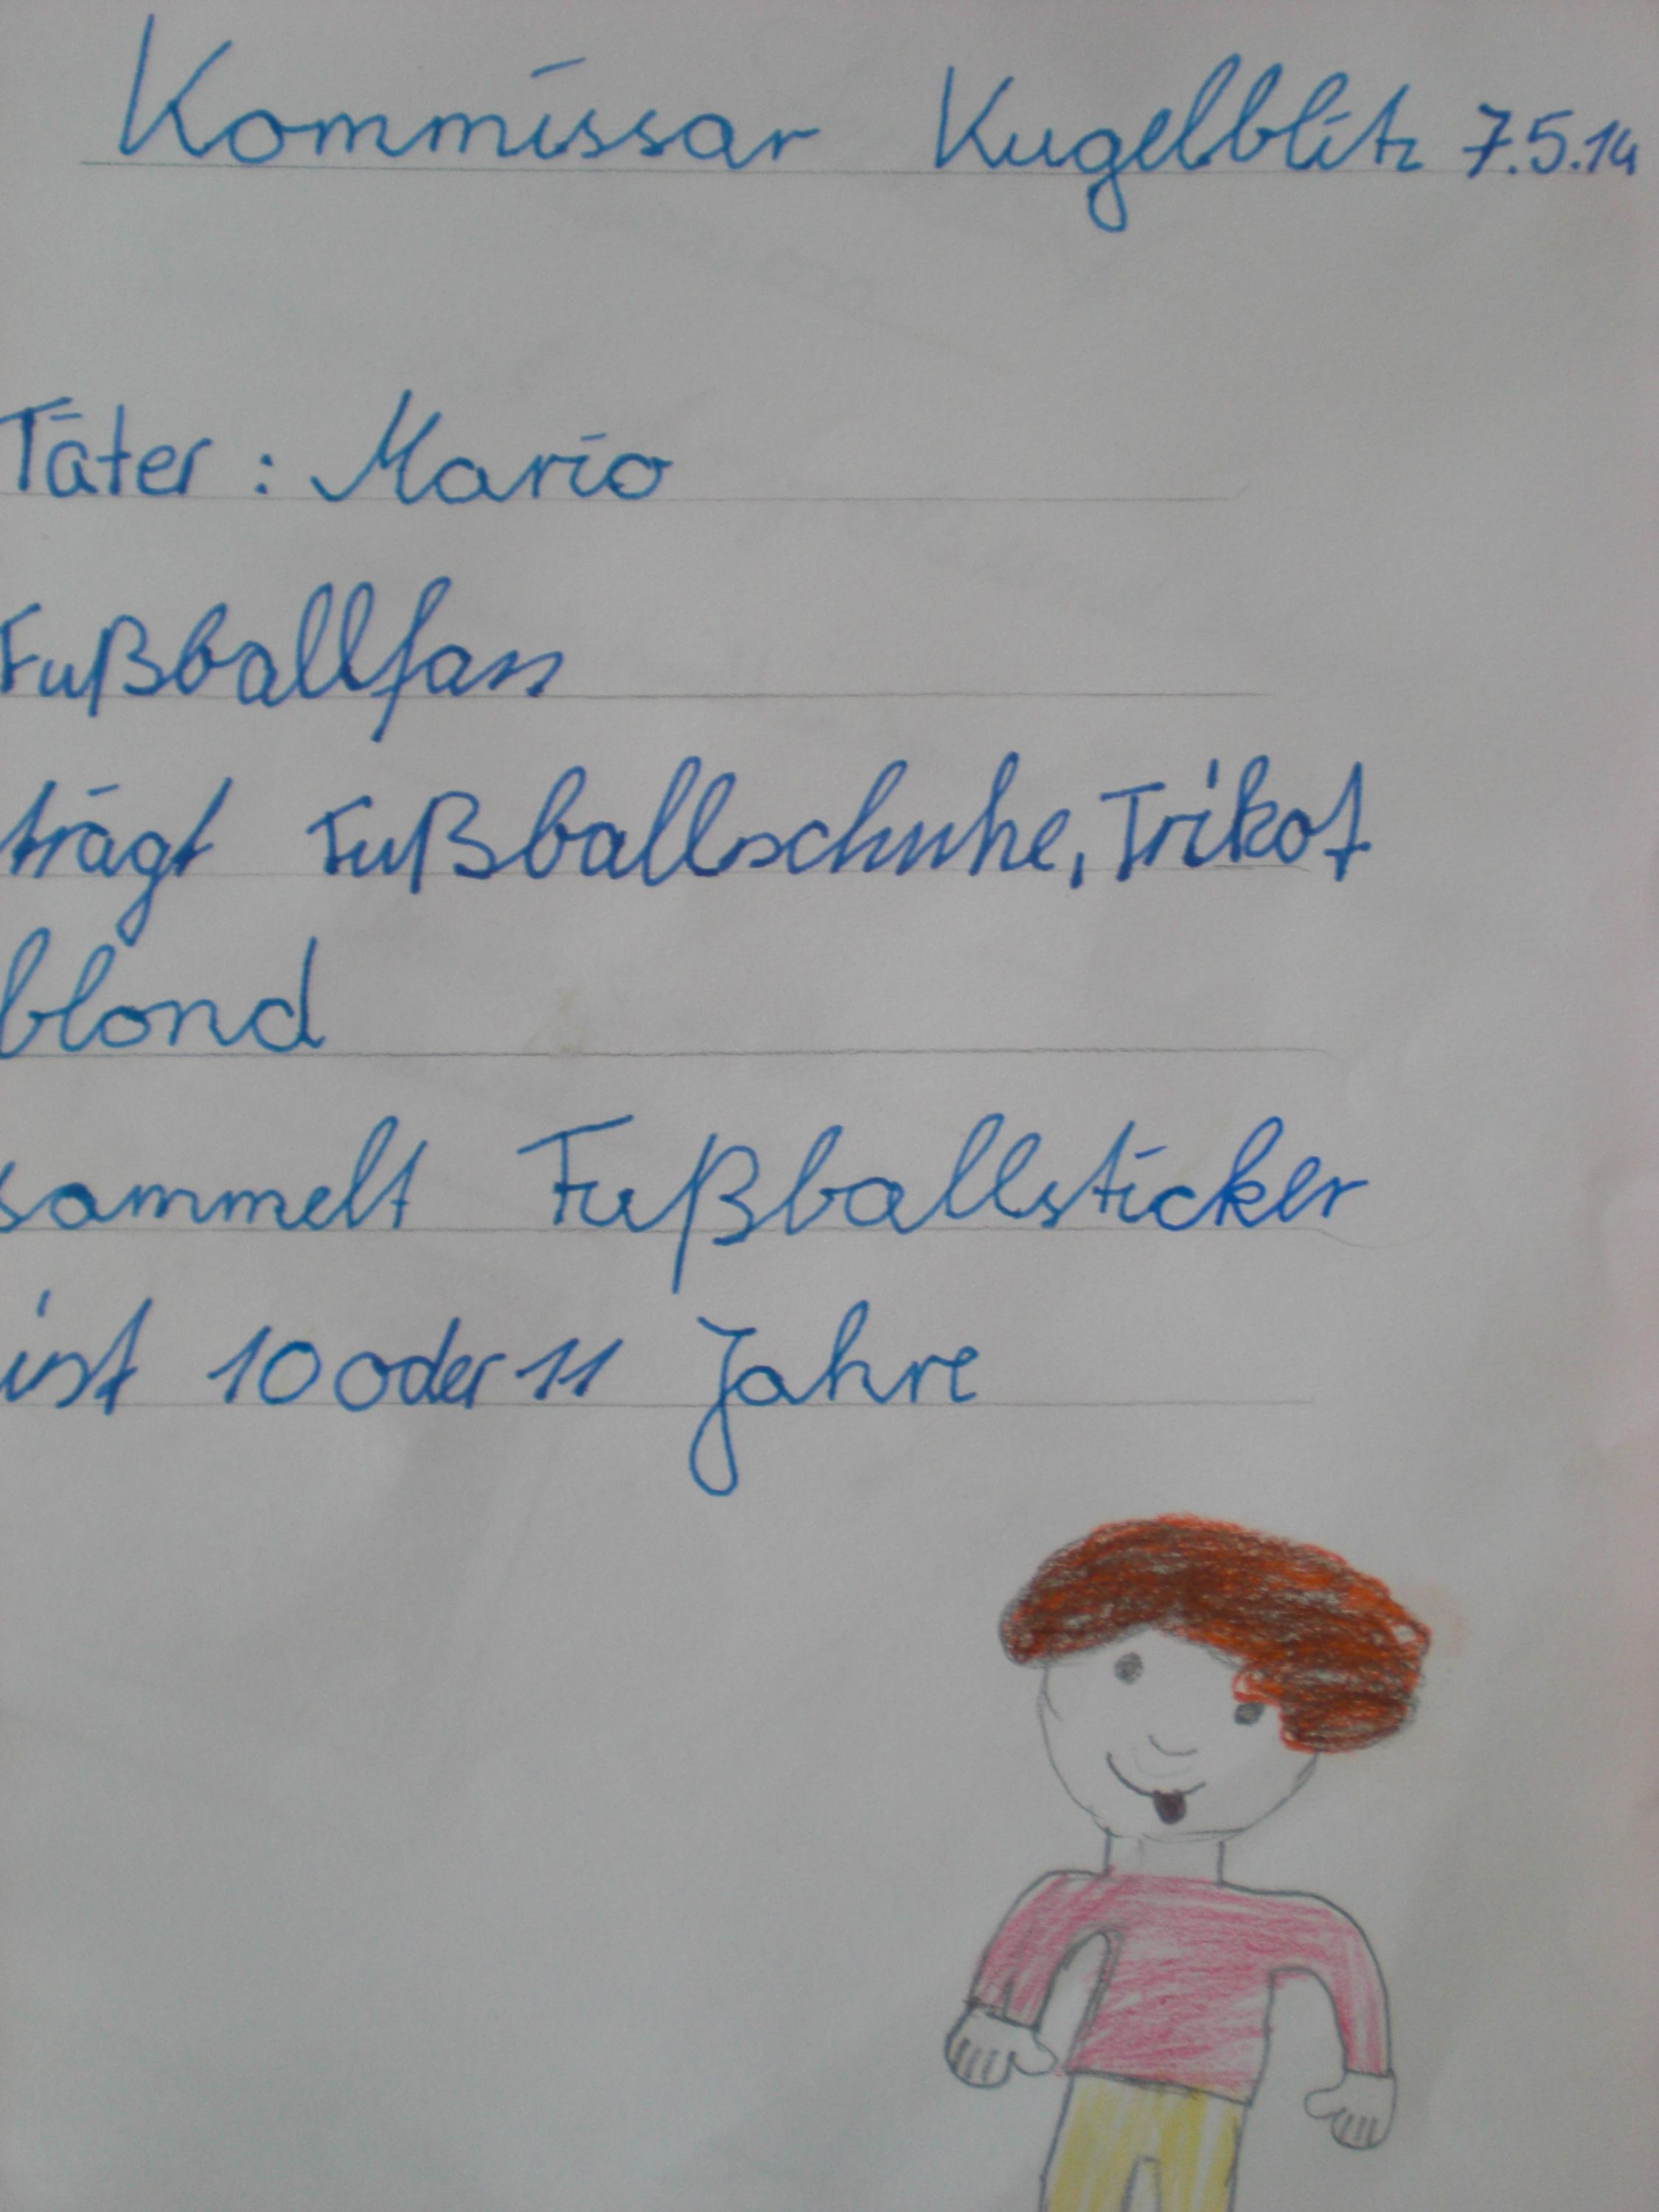 Kommissar Kugelblitz 7.5.14
Täter : Mario
Fußballfan
trägt Fußballschuhe, Trikot
blond
sammelt Fußballsticker
ist 10 oder 11 Jahre